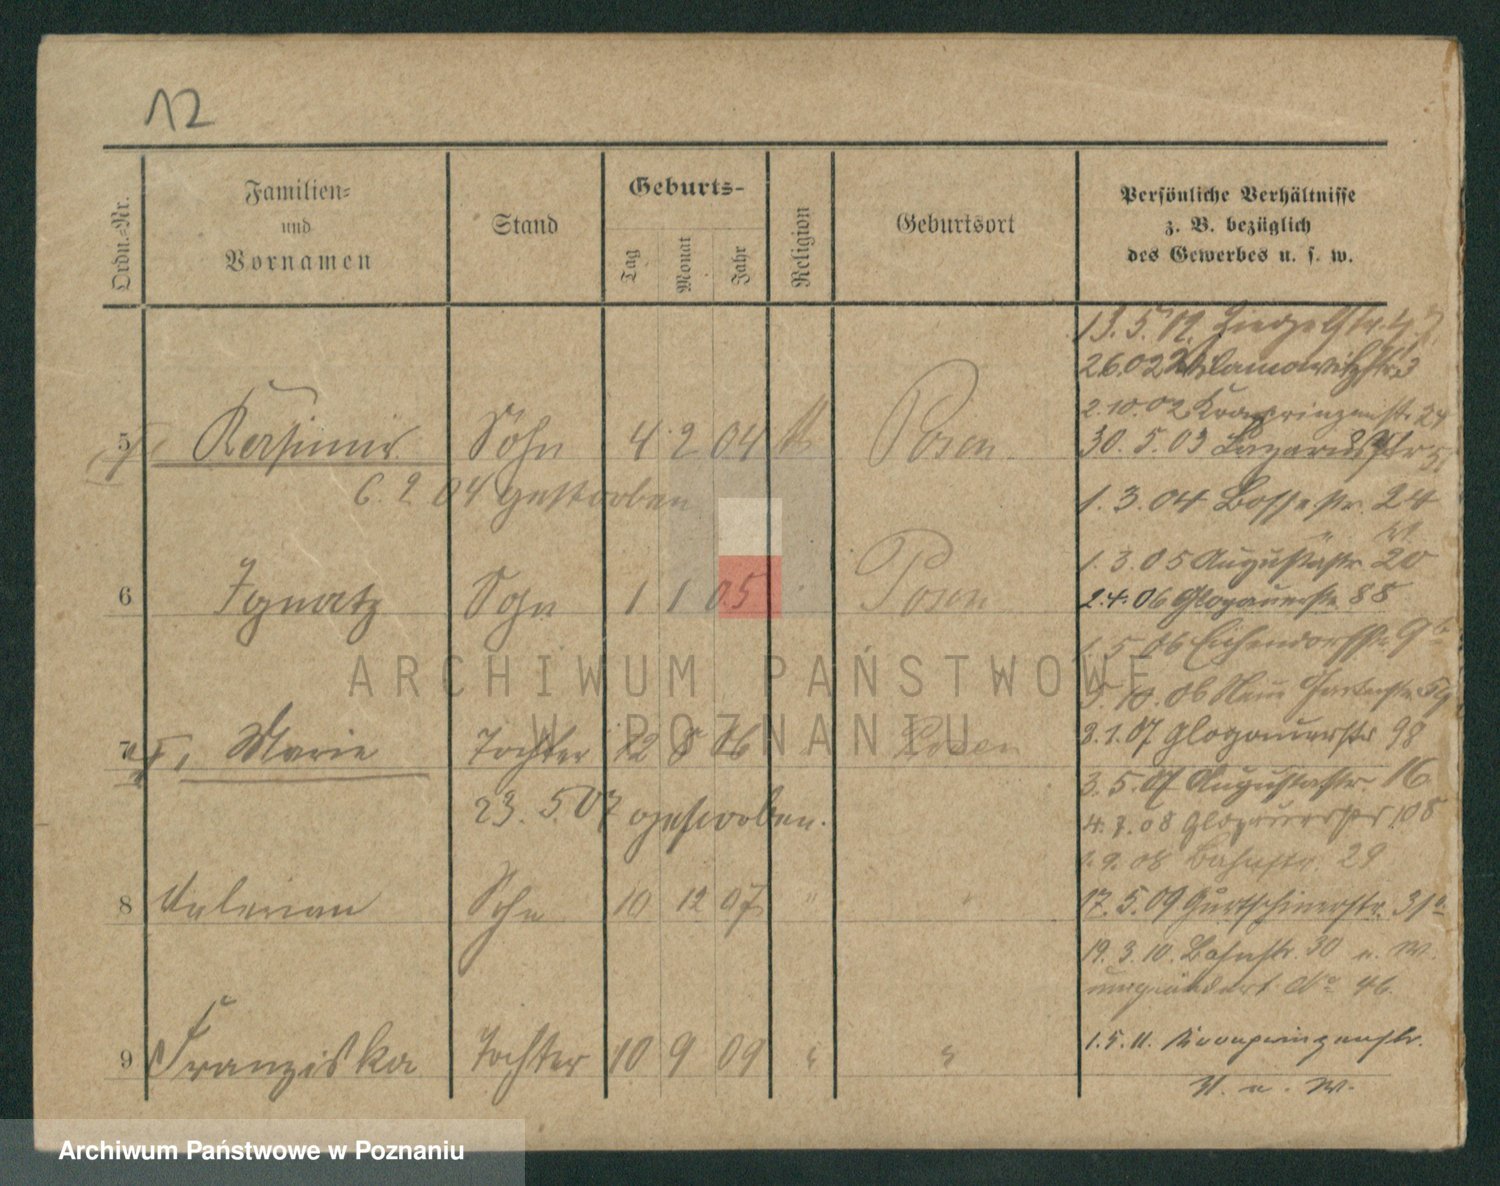 12
Ordn.-Nr.
Familien-
und
Vornamen
Stand
Geburts-
Tag
Monat
Jahr
Religion
Geburtsort
Persönliche Verhältnisse
z. B. bezüglich
des Gewerbes u. s. w.
13. 5. 02.
26.02 Wilamowitzstr. 3
2.10.02 Kronprinzenstr. 24
5 Kasimir Sohn 4 2 04 Posen
30. 5. 03 Lazarusstr.
04 gestorben
1. 3. 04 Bossestr. 24
1. 3. 05 Augustastr. 20
6 Ignatz Sohn 1 1 05 Posen
2. 4. 06 Glogauerstr. 88
1. 5. 06 Eichendorffstr. 9
ARCHIWUM PAŃSTWOWE
W POZNANIU
5. 10. 06 Neue Gartenstr. 59
7 Marie Tochter 12 8 06 Posen
3. 1. 07 Glogauerstr. 98
3. 5. 07 Augustastr. 16
23. 5. 07 gestorben.
4. 7. 08 Glogauerstr. 108
1. 9. 08 Bahnstr. 29
8 Valerian Sohn 10 12 07 " "
17. 5. 09 Gurtschinerstr. 31a
19. 3. 10. Bahnstr. 30 u. W.
umgeändert No 46.
9 Franziska Tochter 10 9 09 " "
1. 5. 11. Kronprinzenstr.
u. W.
Archiwum Państwowe w Poznaniu